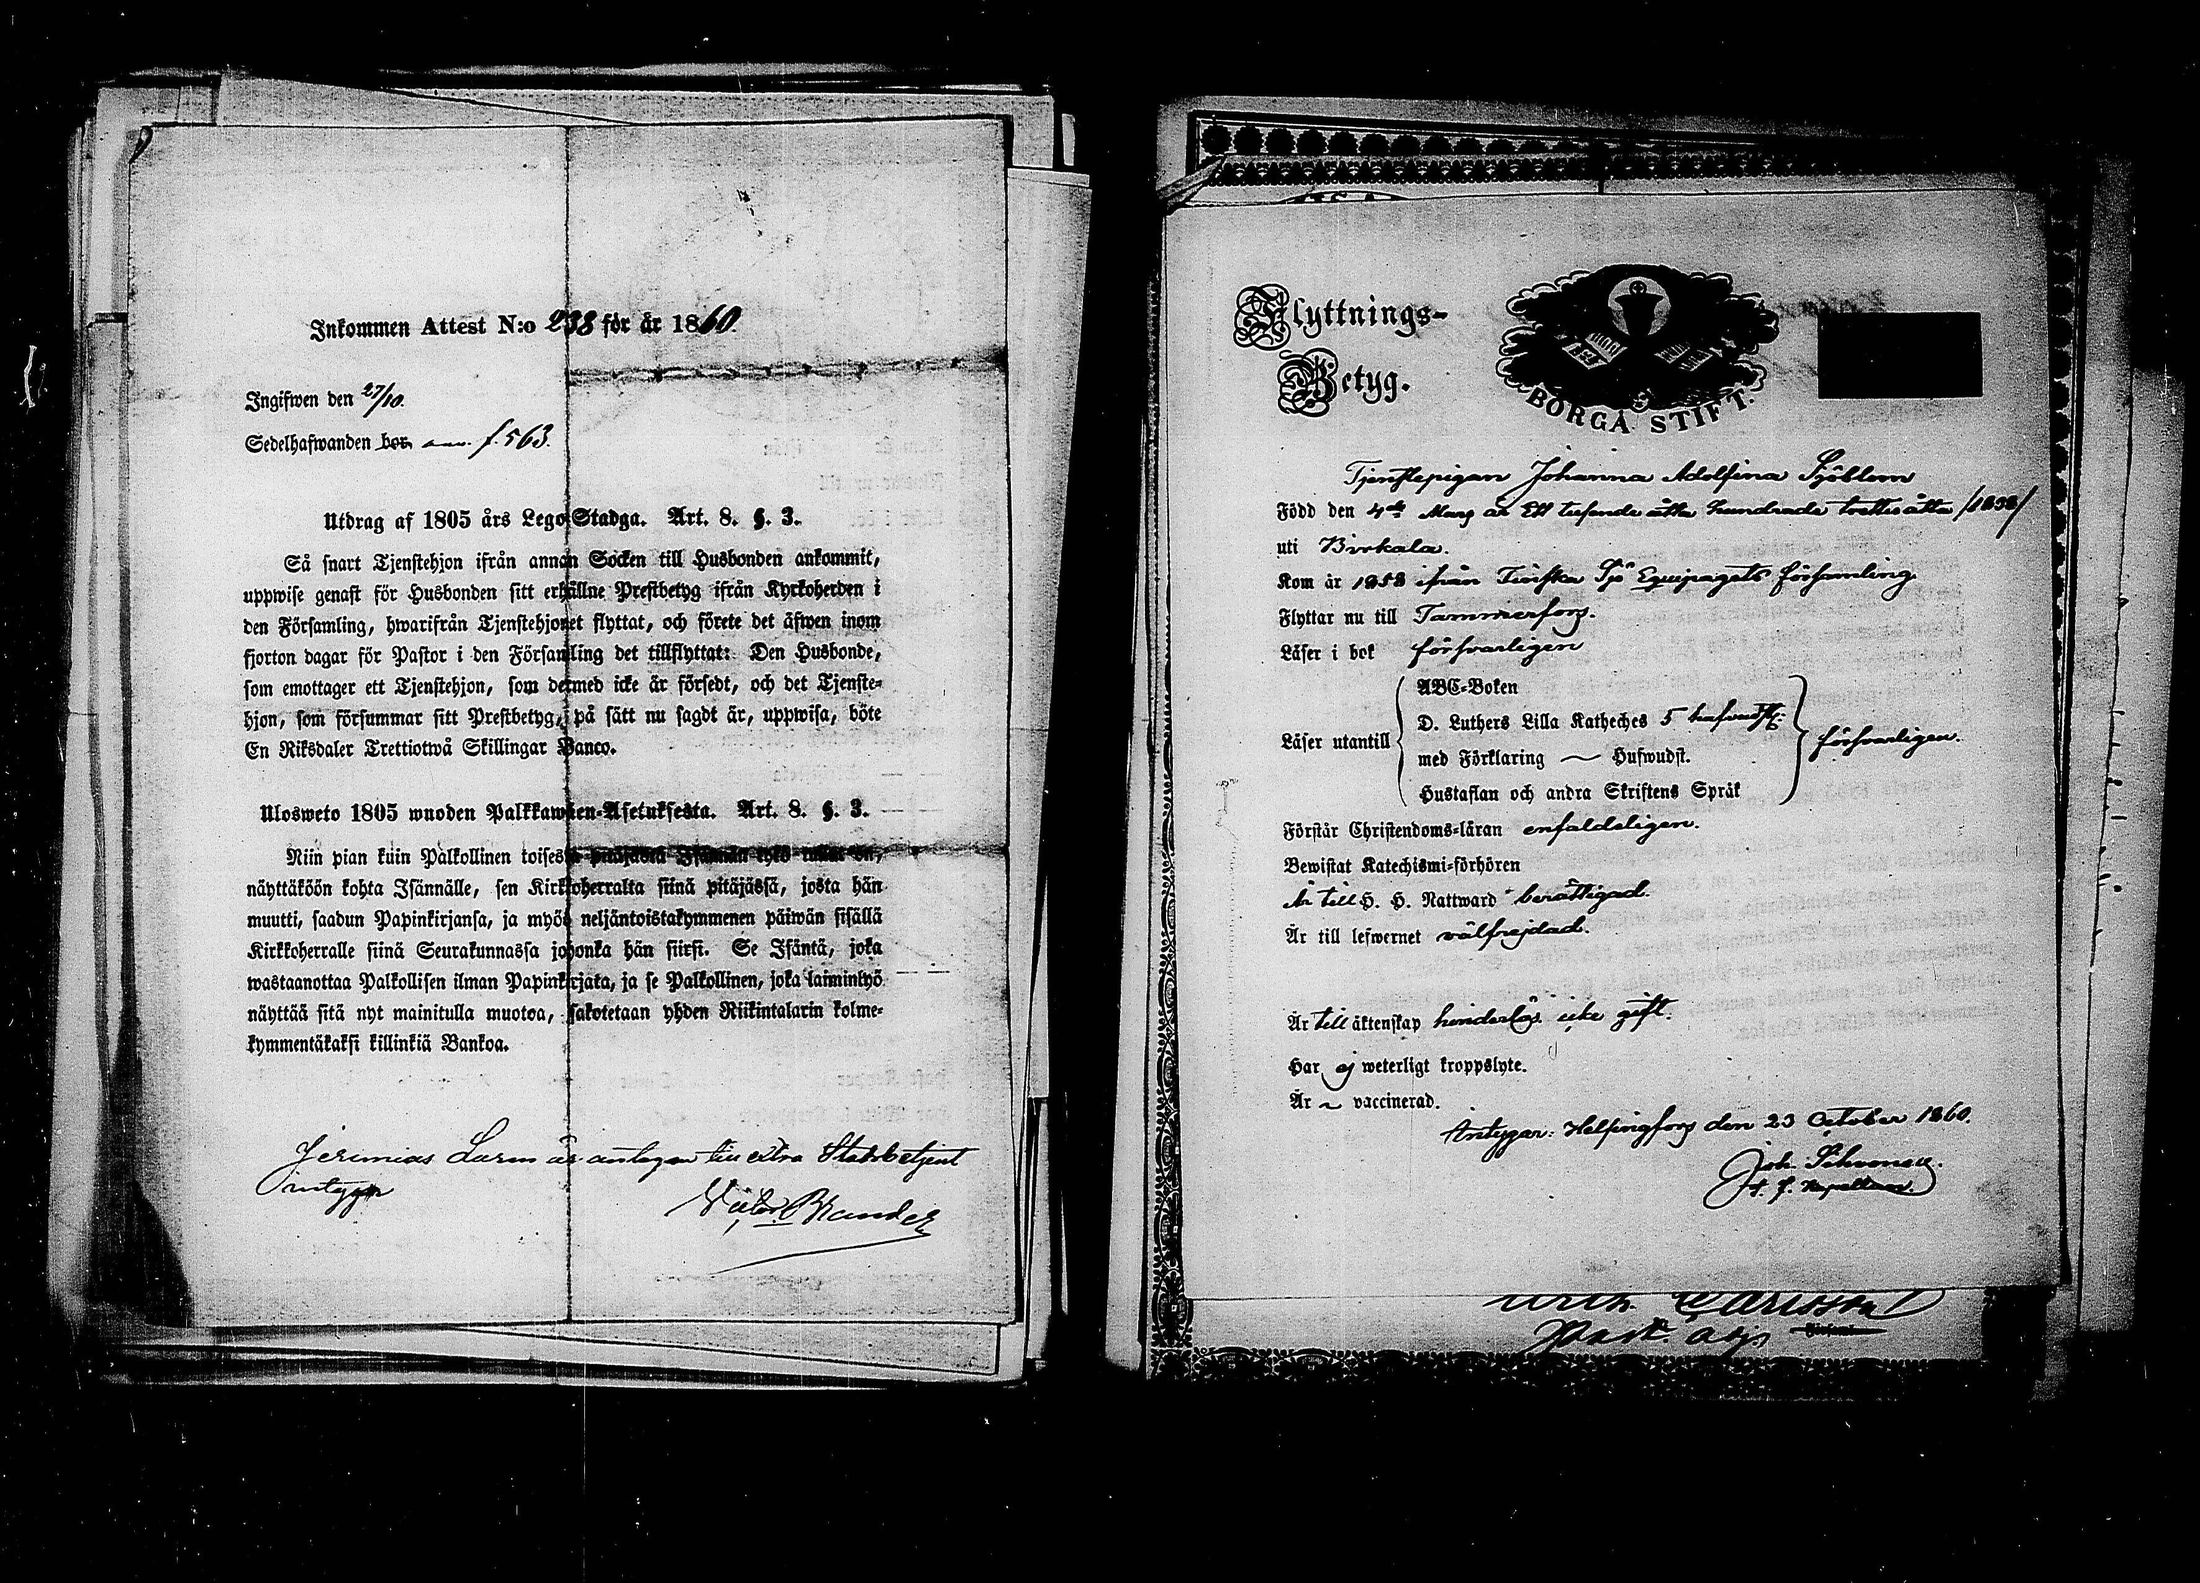 Inkommen Attest N:o 238 för år 1860
Ingifwen den 27/10.
Sedelhafwanden bor f. 563.
Utdrag af 1805 års Lego-Stadga. Art. 8. §. 3.
Så snart Tjenstehjon ifrån annan Socken till Husbonden ankommit,
uppwise genast för Husbonden sitt erhållne Prestbetyg ifrån Kyrkoherden i
den Församling, hwarifrån Tjenstehjonet flyttat, och förete det äfwen inom
fjorton dagar för Pastor i den Församling det tillflyttat: Den Husbonde,
som emottager ett Tjenstehjon, som dermed icke är försedt, och det Tjenste-
hjon, som försummar sitt Prestbetyg, på sätt nu sagdt är, uppwisa, böte
En Riksdaler Trettiotwå Skillingar Banco.
Ulosweto 1805 wuoden Palkkawäen-Asetuksesta. Art. 8. §. 3.
Niin pian kuin Palkollinen toisesta pitäjästä Isännän tykö tullut on,
näyttäköön kohta Isännälle, sen Kirkkoherralta siinä pitäjässä, josta hän
muutti, saadun Papinkirjansa, ja myös neljäntoistakymmenen päiwän sisällä
Kirkkoherralle siinä Seurakunnassa johonka hän siirsi. Se Isäntä, joka
wastaanottaa Palkollisen ilman Papinkirjata, ja se Palkollinen, joka laiminlyö
näyttää sitä nyt mainitulla muotoa, sakotetaan yhden Riikintalarin kolme-
kymmentäkaksi killinkiä Bankoa.
Jeremias Lorm är antagen till extra Stadsbetjent
intygar
Victor Brander
Flyttnings-
Betyg.
BORGÅ STIFT.
Tjenstepigan Johanna Adolfina Sjöblom
Född den 4de Mars år Ett tusende åtta hundrade trettioåtta /1838/
uti Birkala.
Kom år 1858 ifrån Finska Sjö Equipagets församling
Flyttar nu till Tammerfors.
Läser i bok försvarligen
ABC-Boken
D. Luthers Lilla Katheches 5 hufvudst.
Läser utantill med Förklaring — Hufwudst. försvarligen.
Hustaflan och andra Skriftens Språk
Förstår Christendoms-läran enfaldeligen.
Bewistat Katechismi-förhören
Är till H. H. Nattward berättigad.
Är till lefwernet välfrejdad.
Är till äktenskap hinderlös icke gift.
Har ej weterligt kroppslyte.
Är ~ vaccinerad.
Intygar: Helsingfors den 23 October 1860.
Joh. Schroneck.
t. f. Kapellan.
Carlsson
Past. adj.